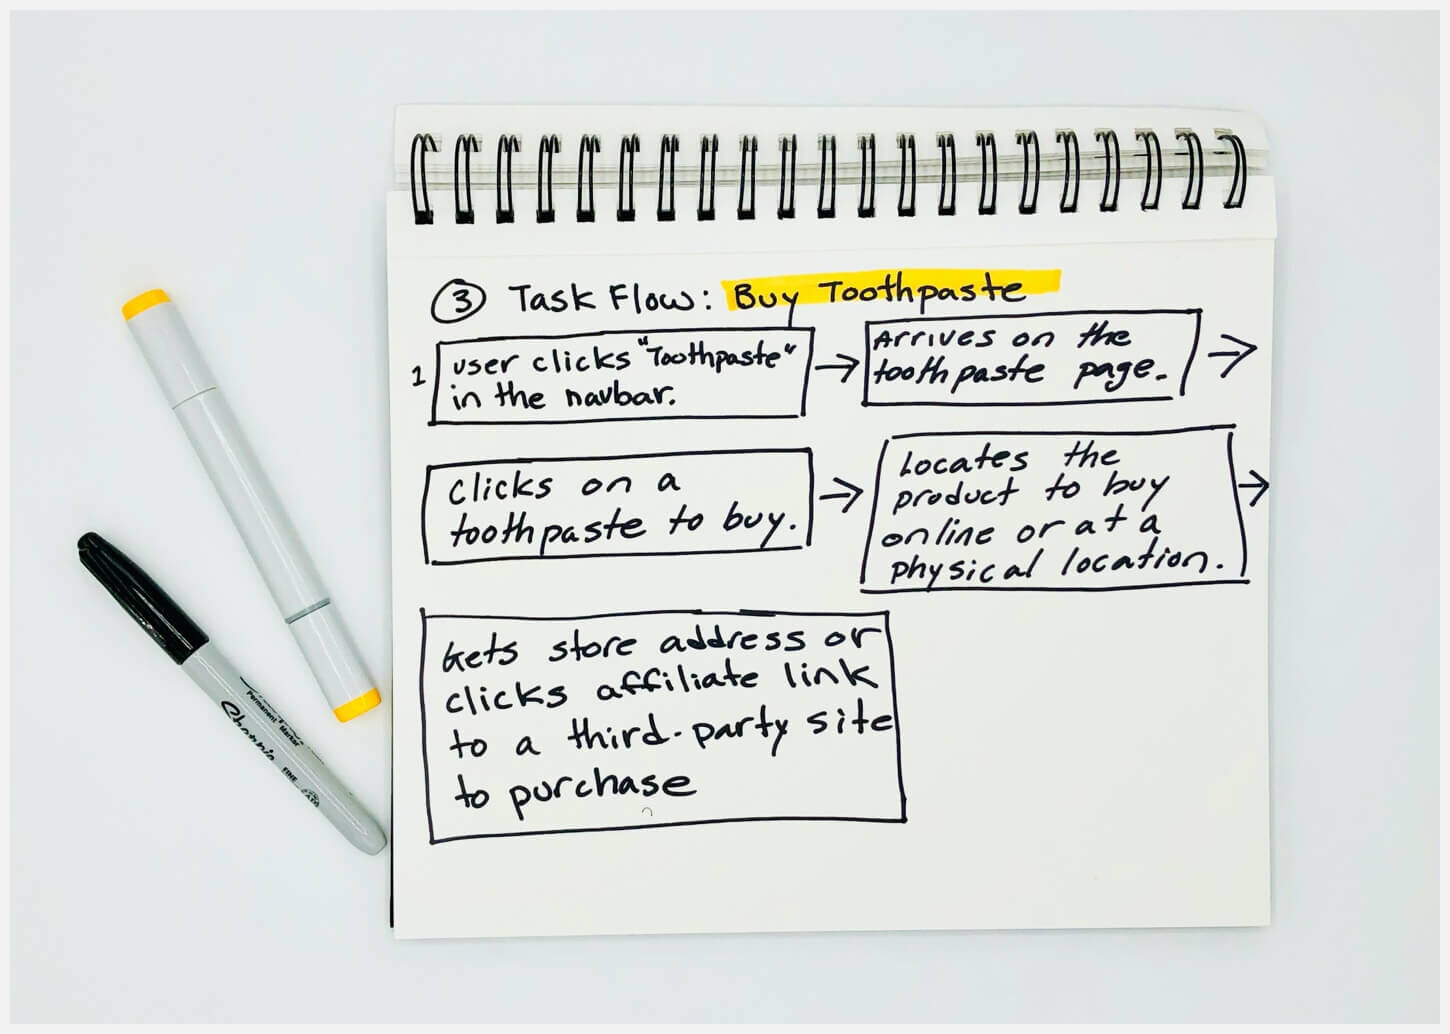 3 Task Flow: Buy Toothpaste
1
user clicks "Toothpaste"
in the navbar.
→
Arrives on the
toothpaste page.
→
Clicks on a
toothpaste to buy.
→
Locates the
product to buy
online or at a
physical location.
→
Gets store address or
clicks affiliate link
to a third-party site
to purchase
Sharpie
Permanent Marker
FINE